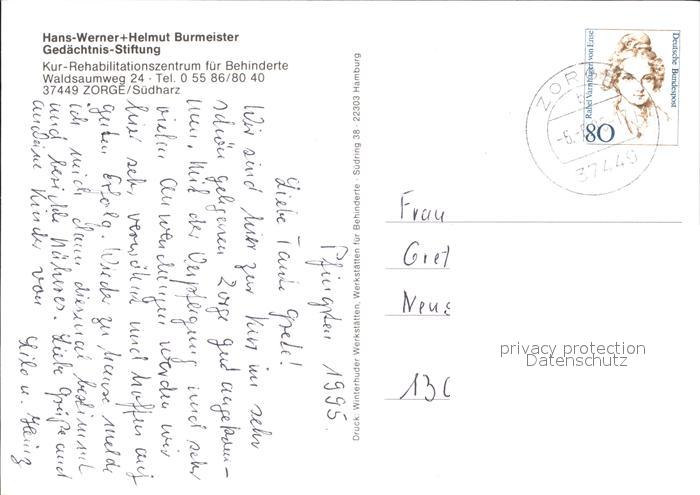 Hans-Werner+Helmut Burmeister
Gedächtnis-Stiftung
Kur-Rehabilitationszentrum für Behinderte
Waldsaumweg 24 · Tel. 0 55 86/80 40
37449 ZORGE/Südharz
Pfingsten 1995.
Liebe Tante Grete!
Wir sind hier zur Kur im sehr
schön gelegenen Zorge gut angekom-
men. Mit der Verpflegung und sehr
vielen Anwendungen werden wir
hier sehr verwöhnt und hoffen auf
guten Erfolg. Wieder zu Hause melde
ich mich dann diesmal bestimmt
und berichte Näheres. Liebe Grüße auch
an deine Kinder von Lilo u. Heinz
Druck: Winterhuder Werkstätten, Werkstätten für Behinderte · Südring 38 · 22303 Hamburg
Rahel Varnhagen von Ense
Deutsche Bundespost
80
ZORGE
37449
Frau
Gret
Neus
130
privacy protection
Datenschutz